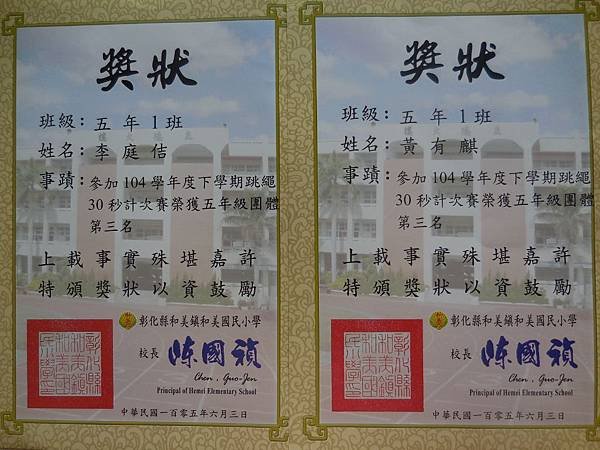 獎狀
班級：五年1班
姓名：李庭佶
事蹟：參加104學年度下學期跳繩
30秒計次賽榮獲五年級團體
第三名
上載事實殊堪嘉許
特頒獎狀以資鼓勵
彰化縣和美鎮和美國民小學
校長 陳國禎
Chen, Guo-Jen
Principal of Hemei Elementary School
中華民國一百零五年六月三日
獎狀
班級：五年1班
姓名：黃有麒
事蹟：參加104學年度下學期跳繩
30秒計次賽榮獲五年級團體
第三名
上載事實殊堪嘉許
特頒獎狀以資鼓勵
彰化縣和美鎮和美國民小學
校長 陳國禎
Chen, Guo-Jen
Principal of Hemei Elementary School
中華民國一百零五年六月三日